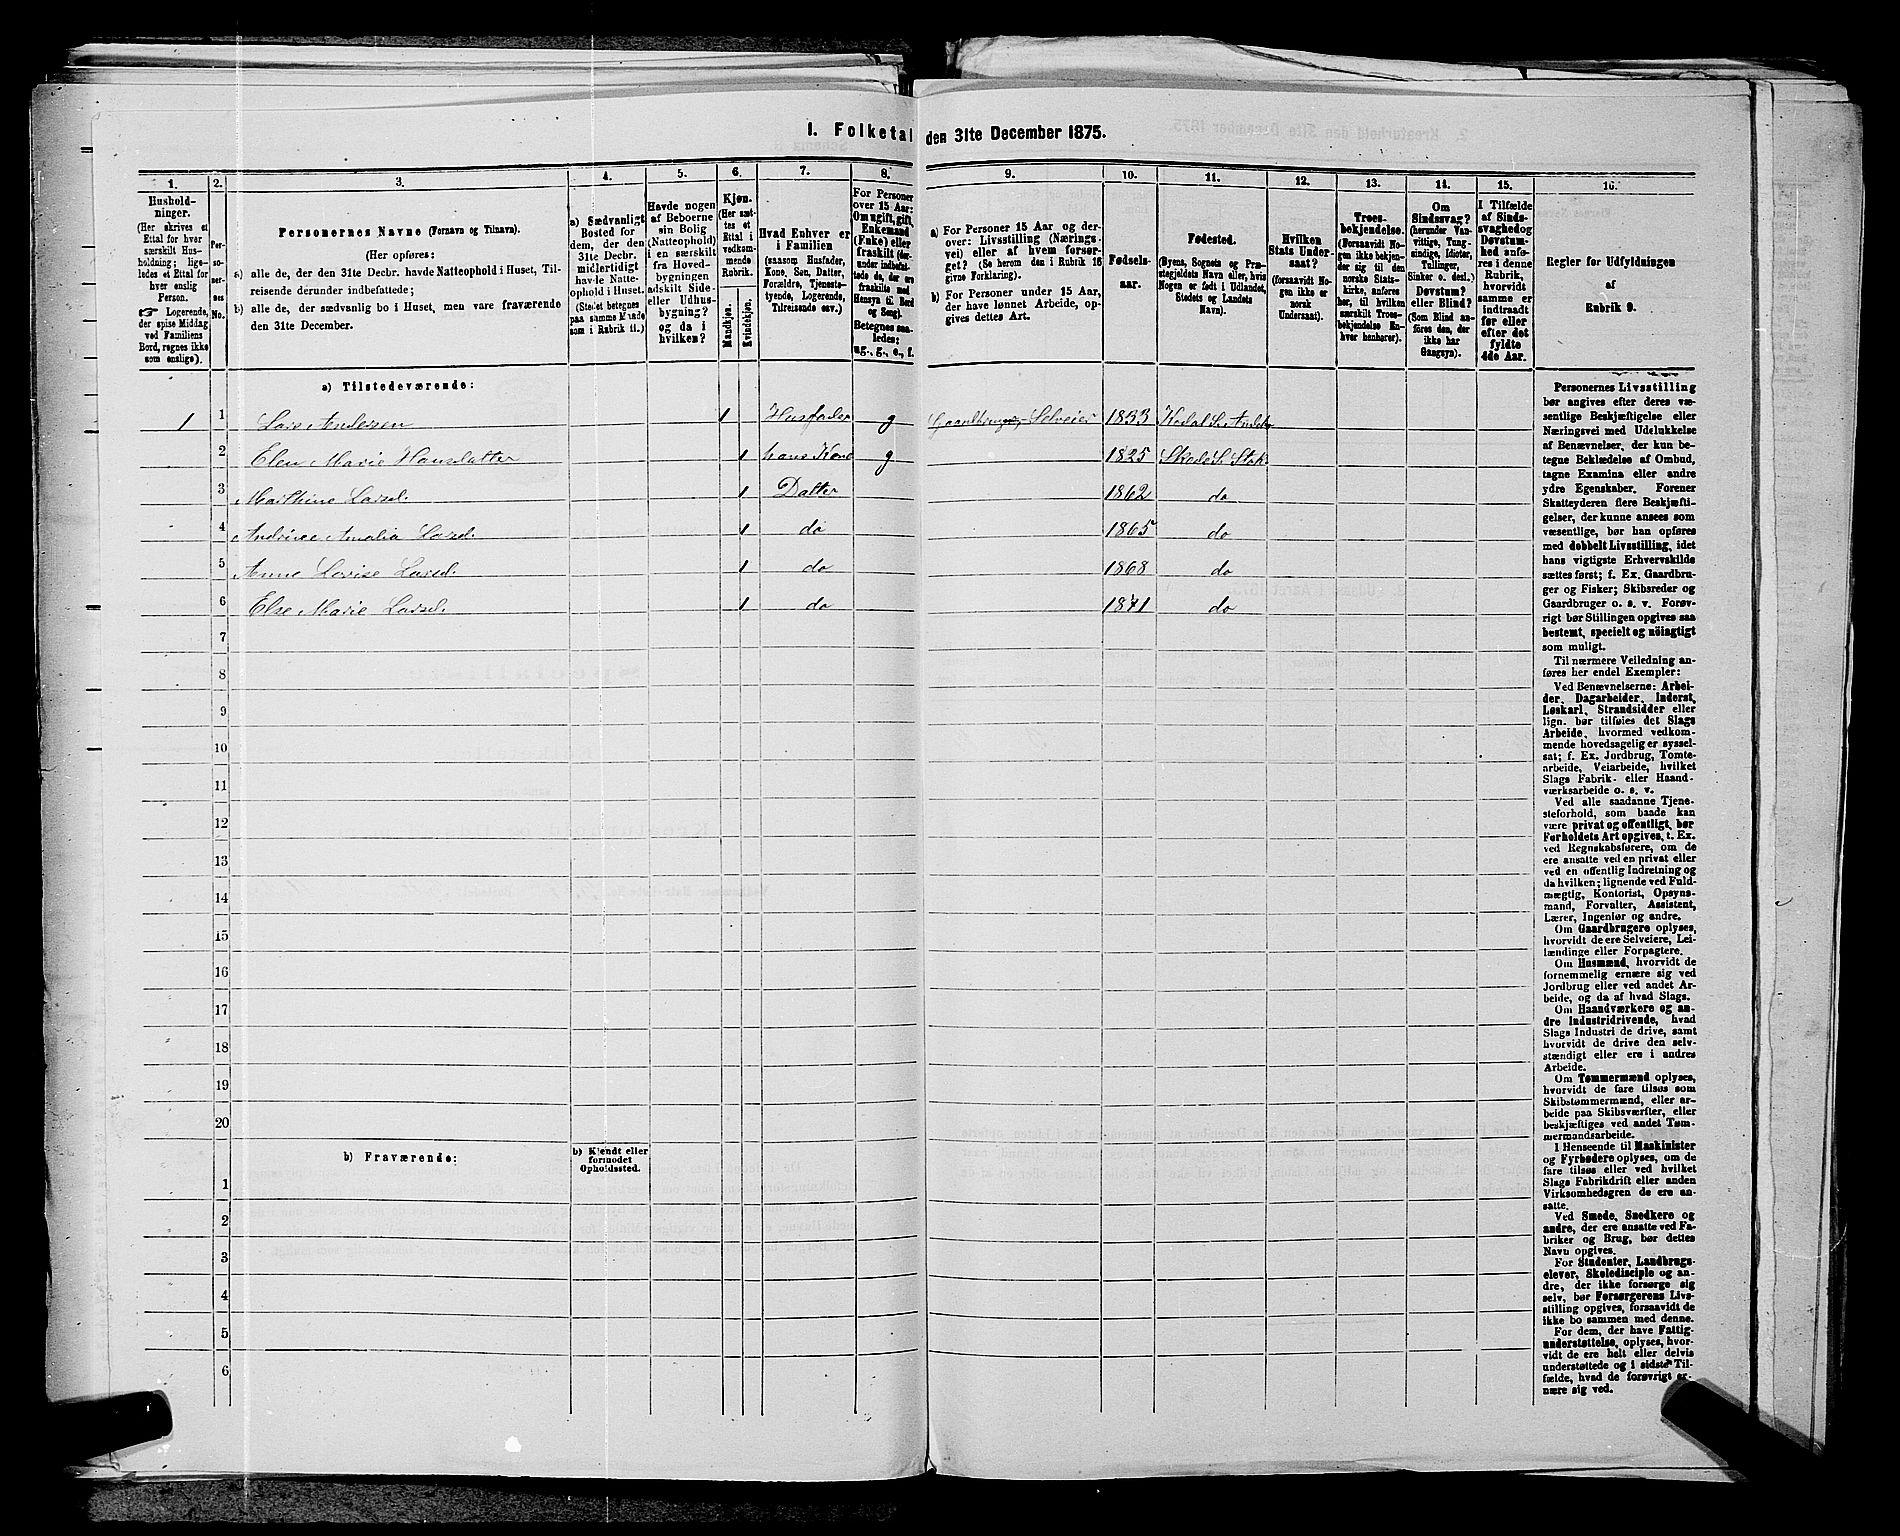 1. Folketal den 31te December 1875.
1.
2.
3.
4.
5.
6.
7.
8.
9.
10.
11.
12.
13.
14.
15.
16.
Hushold-
ninger.
(Her skrives et
Ettal for hver
særskilt Hus-
holdning; lige-
ledes et Ettal for
hver enslig
Person.
☞ Logerende,
der spise Middag
ved Familiens
Bord, regnes ikke
som enslige).
Per-
so-
ner-
nes
No.
Personernes Navne (Fornavn og Tilnavn).
(Her opføres:
a) alle de, der den 31te Decbr. havde Natteophold i Huset, Til-
reisende derunder indbefattede;
b) alle de, der sædvanlig bo i Huset, men vare fraværende
den 31te December.
a) Sædvanligt
Bosted for
dem, der den
31te Decbr.
midlertidigt
havde Natte-
ophold i Huset.
(Stedet betegnes
paa samme Maade
som i Rubrik 11.)
Havde nogen
af Beboerne
sin Bolig
(Natteophold)
i en særskilt
fra Hoved-
bygningen
adskilt Side-
eller Udhus-
bygning?
og da i
hvilken?
Kjøn.
(Her sæt-
tes et
Ettal i
vedkom-
mende
Rubrik.
Mandkjøn.
Kvindekjøn.
Hvad Enhver er
i Familien
(saasom Husfader,
Kone, Søn, Datter,
Forældre, Tjeneste-
tyende, Logerende,
Tilreisende osv.)
For Personer
over 15 Aar:
Om ugift, gift,
Enkemand
(Enke) eller
fraskilt (der-
under indbefat-
tede de, der ere
fraskilte med
Hensyn til Bord
og Seng).
Betegnes saa-
ledes:
ug., g., e., f.
a) For Personer 15 Aar og der-
over: Livsstilling (Nærings-
vei) eller af hvem forsør-
get? (Se herom den i Rubrik 16
givne Forklaring).
b) For Personer under 15 Aar,
der have lønnet Arbeide, op-
gives dettes Art.
Fødsels-
aar.
Fødested.
(Byens, Sognets og Præ-
stegjeldets Navn eller, hvis
Nogen er født i Udlandet,
Stedets og Landets
Navn).
Hvilken
Stats Under-
saat?
(forsaavidt No-
gen ikke er
norsk
Undersaat).
Troes-
bekjendelse.
(Forsaavidt No-
gen ikke bekjen-
der sig til den
norske Stats-
kirke, anføres
her, til hvilken
særskilt Troes-
bekjendelse En-
hver henhører).
Om
Sindssvag?
(herunder Van-
vittige, Tung-
sindige, Idioter,
Tullinger,
Sinker o. desl.)
Døvstum?
eller Blind?
(Som Blind an-
føres den, der
ikke har
Gangsyn).
I Tilfælde
af Sinds-
svaghed og
Døvstum-
hed anfø-
res i denne
Rubrik,
hvorvidt
samme er
indtraadt
før eller
efter det
fyldte
4de Aar.
Regler for Udfyldningen
af
Rubrik 9.
a) Tilstedeværende:
1 1 Lars Andersen 1 Husfader g Gaardbruger, Selveier 1833 Kodal S.
2 Elen Marie Hansdatter 1 hans Kone g 1825 Skede S. Stok.
3 Mathine Larsd. 1 Datter 1862 do
4 Andrine Amalia Larsd. 1 do 1865 do
5 Anne Lovise Larsd. 1 do 1868 do
6 Else Marie Larsd. 1 do 1871 do
7
8
9
10
11
12
13
14
15
16
17
18
19
20
b) Fraværende:
b) Kjendt eller
formodet
Opholdssted.
1
2
3
4
5
6
Personernes Livsstilling
bør angives efter deres væ-
sentlige Beskjæftigelse eller
Næringsvei med Udelukkelse
af Benævnelser, der kun be-
tegne Beklædelse af Ombud,
tagne Examina eller andre
ydre Egenskaber. Forener
Skatteyderen flere Beskjæfti-
gelser, der kunne ansees som
væsentlige, bør han opføres
med dobbelt Livsstilling, idet
hans vigtigste Erhvervskilde
sættes først; f. Ex. Gaardbru-
ger og Fisker; Skibsreder og
Gaardbruger o. s. v. Forøv-
rigt bør Stillingen opgives saa
bestemt, specielt og nöiagtigt
som muligt.
Til nærmere Veiledning an-
føres her endel Exempler:
Ved Benævnelserne: Arbei-
der, Dagarbeider, Inderst,
Løskarl, Strandsidder eller
lign. bør tilføies det Slags
Arbeide, hvormed vedkom-
mende hovedsagelig er syssel-
sat; f. Ex. Jordbrug, Tomte-
arbeide, Veiarbeide, hvilket
Slags Fabrik- eller Haand-
værksarbeide o. s. v.
Ved alle saadanne Tjene-
steforhold, som baade kan
være privat og offentligt, bør
Forholdets Art opgives, t. Ex.
ved Regnskabsførere, om de
ere ansatte ved en privat eller
ved en offentlig Indretning og
da hvilken; lignende ved Fuld-
mægtig, Kontorist, Opsyns-
mand, Forvalter, Assistent,
Lærer, Ingeniør og andre.
Om Gaardbrugere oplyses,
hvorvidt de ere Selveiere, Lei-
lændinge eller Forpagtere.
Om Husmænd, hvorvidt de
fornemmelig ernære sig ved
Jordbrug eller ved andet Ar-
beide, og da af hvad Slags.
Om Haandværkere og an-
dre Industridrivende, hvad
Slags Industri de drive, samt
hvorvidt de drive den selv-
stændigt eller ere i andres
Arbeide.
Om Tømmermænd oplyses,
hvorvidt de fare tilsøs som
Skibstømmermænd, eller ar-
beide paa Skibsværfter, eller
beskjæftiges ved andet Tøm-
mermandsarbeide.
I Henseende til Maskinister
og Fyrbødere oplyses, om de
fare tilsøs eller ved hvilket
Slags Fabrikdrift eller anden
Virksomhedsgren de ere an-
satte.
Ved Smede, Snedkere og
andre, der ere ansatte ved Fa-
briker og Brug, bør dettes
Navn opgives.
For Studenter, Landbrugs-
elever, Skoledisciple og an-
dre, der ikke forsørge sig
selv, bør Forsørgerens Livs-
stilling opgives, forsaavidt de
ikke bo sammen med denne.
For dem, der have Fattig-
understøttelse, oplyses, hvor-
vidt de ere helt eller delvis
understøttede og i sidste Til-
fælde, hvad de forøvrigt er-
nære sig ved.